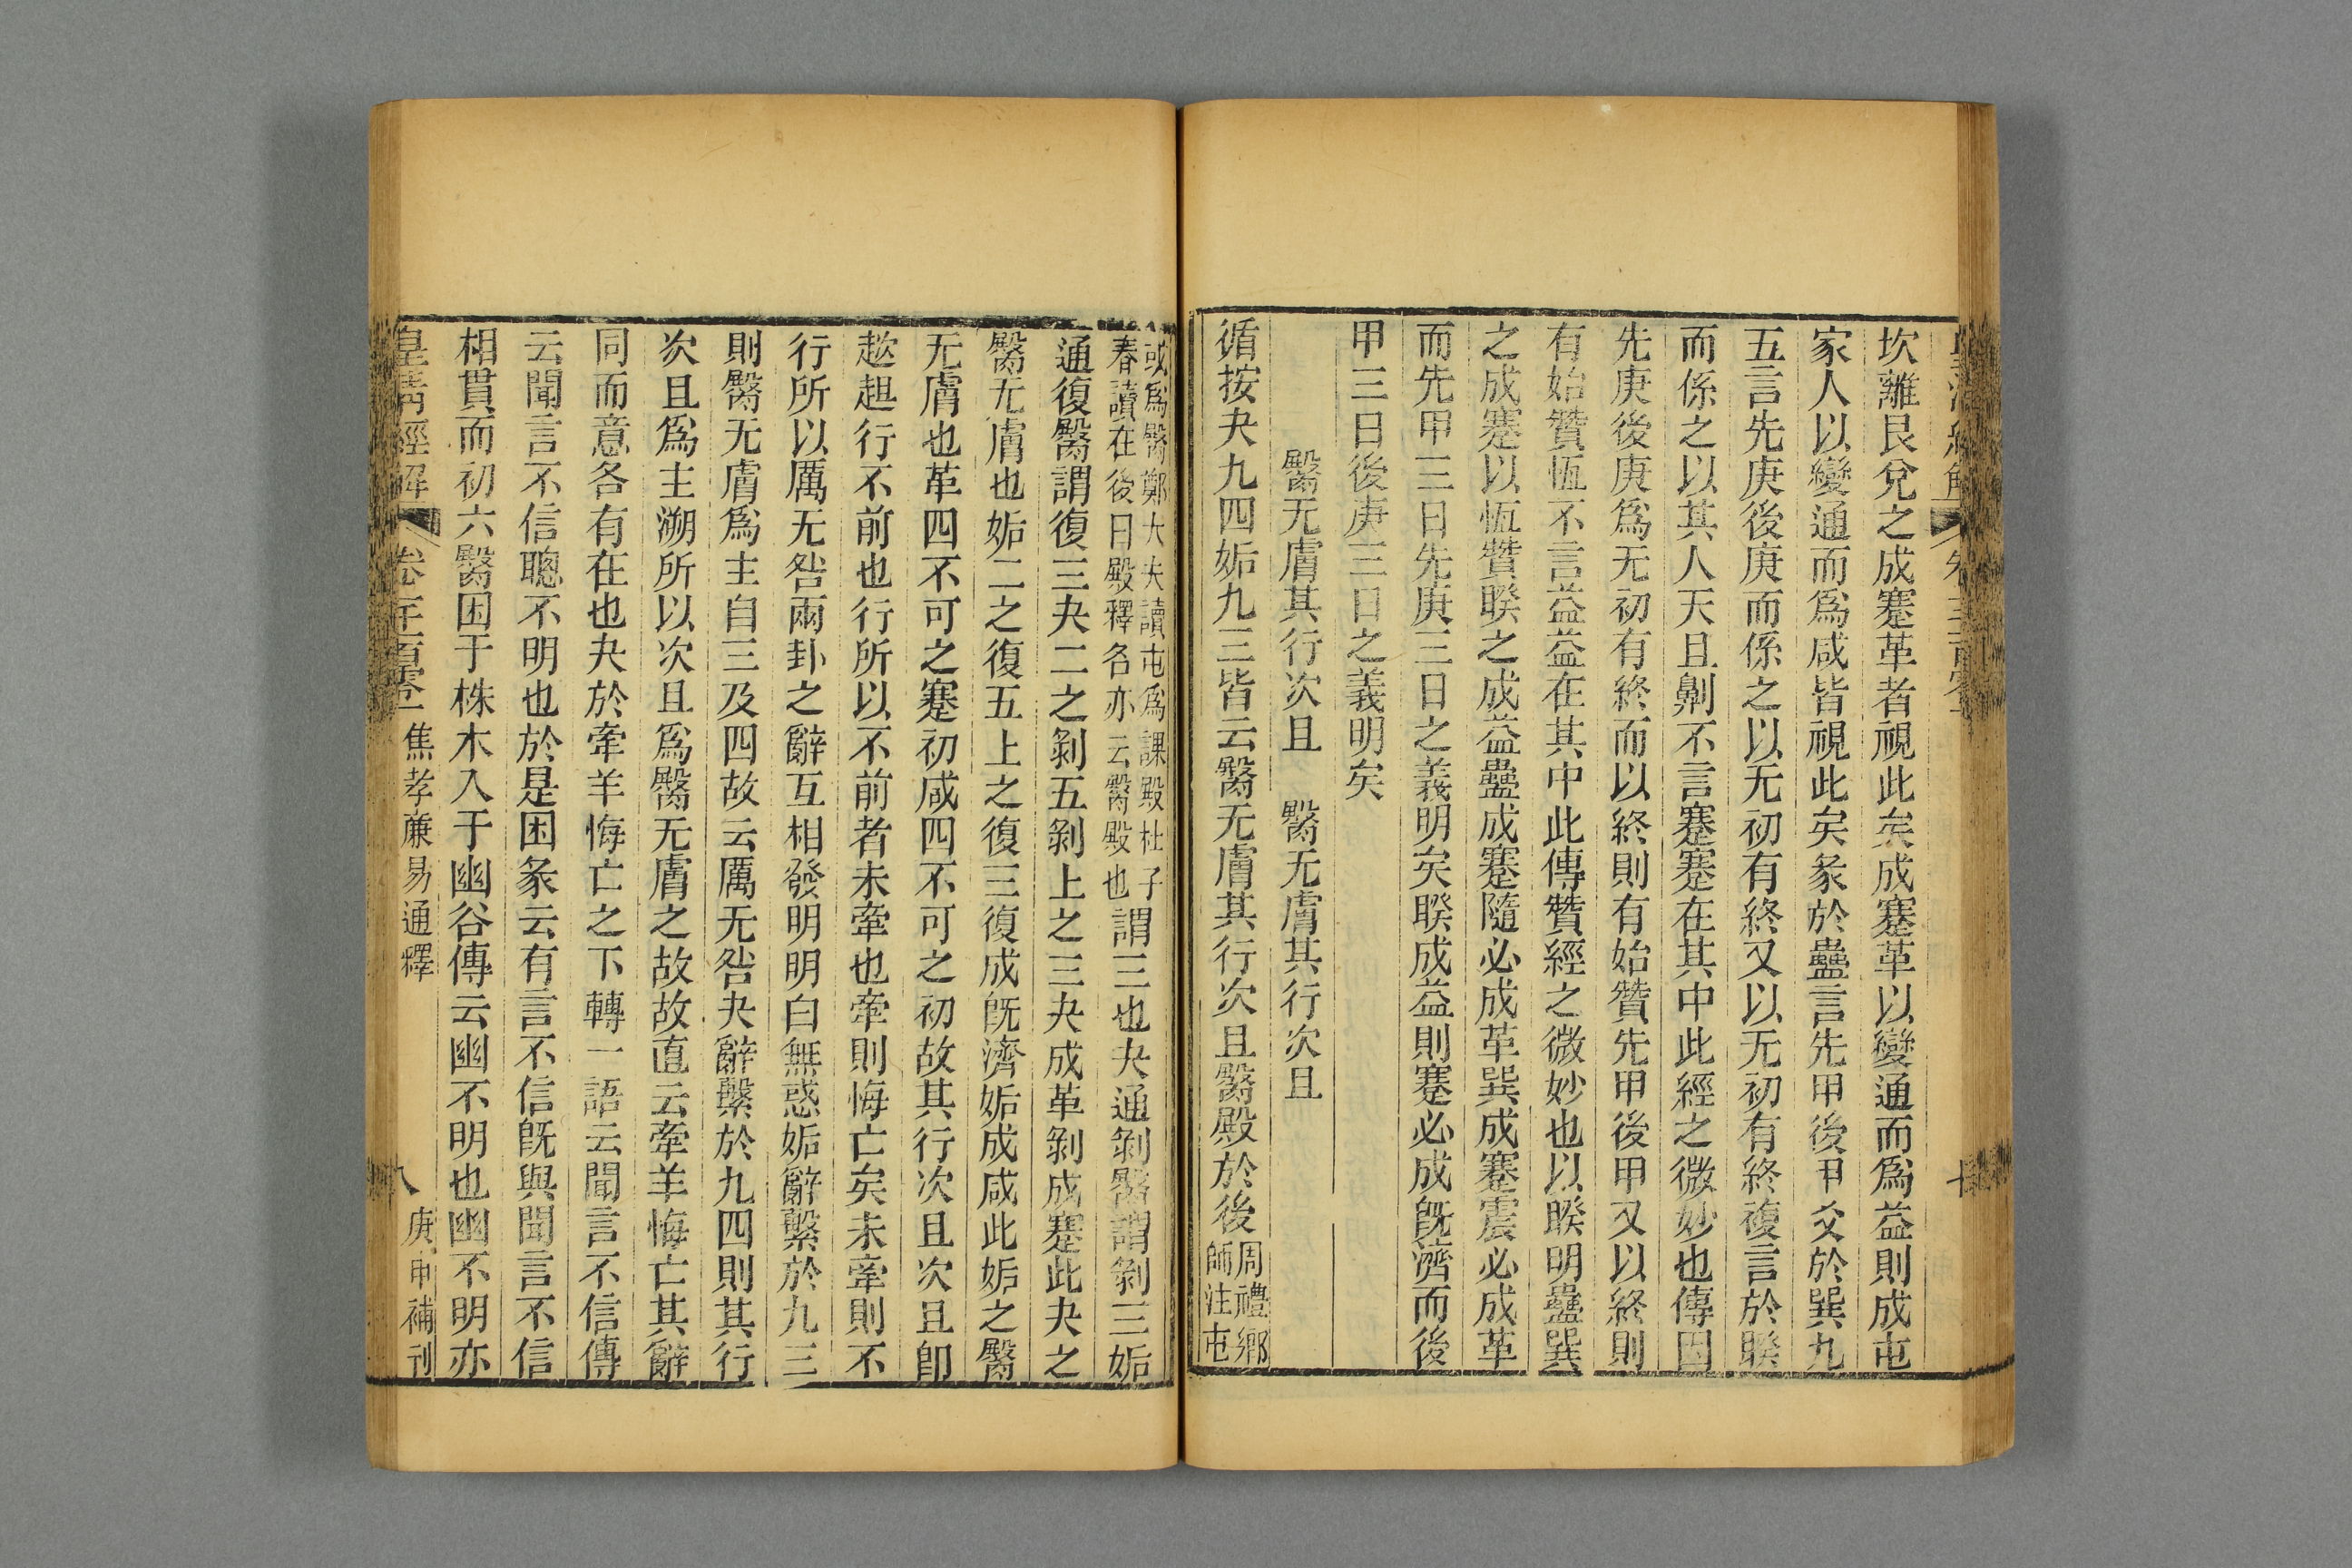 坎離艮兌之成蹇革者視此矣成蹇革以變通而爲益則成屯
家人以變通而爲咸皆視此矣彖於蠱言先甲後甲爻於巽九
五言先庚後庚而係之以无初有終又以无初有終複言於睽
而係之以其人天且劓不言蹇蹇在其中此經之微妙也傳因
先庚後庚爲无初有終而以終則有始贊先甲後甲又以終則
有始贊恆不言益益在其中此傳贊經之微妙也以睽明蠱巽
之成蹇以恆贊睽之成益蠱成蹇隨必成革巽成蹇震必成革
而先甲三日先庚三日之義明矣睽成益則蹇必成旣濟而後
甲三日後庚三日之義明矣
臀无膚其行次且 臀无膚其行次且
循按夬九四姤九三皆云臀无膚其行次且臀殿於後周禮鄉
師注屯
或爲臀鄭大夫讀屯爲課殿杜子
春讀在後曰殿釋各亦云臀殿也謂三也夬通剝臀謂剝三姤
通復臀謂復三夬二之剝五剝上之三夬成革剝成蹇此夬之
臀无膚也姤二之復五上之復三復成旣濟姤成咸此姤之臀
无膚也革四不可之蹇初咸四不可之初故其行次且次且卽
趑趄行不前也行所以不前者未牽也牽則悔亡矣未牽則不
行所以厲无咎兩卦之辭互相發明明白無惑姤辭繫於九三
則臀无膚爲主自三及四故云厲无咎夬辭繫於九四則其行
次且爲主溯所以次且爲臀无膚之故故直云牽羊悔亡其辭
同而意各有在也夬於牽羊悔亡之下轉一語云聞言不信傳
云聞言不信聰不明也於是困彖云有言不信旣與聞言不信
相貫而初六臀困于株木入于幽谷傳云幽不明也幽不明亦
皇淸經解 卷一千一百零一 焦孝廉易通釋 八 庚申補刊